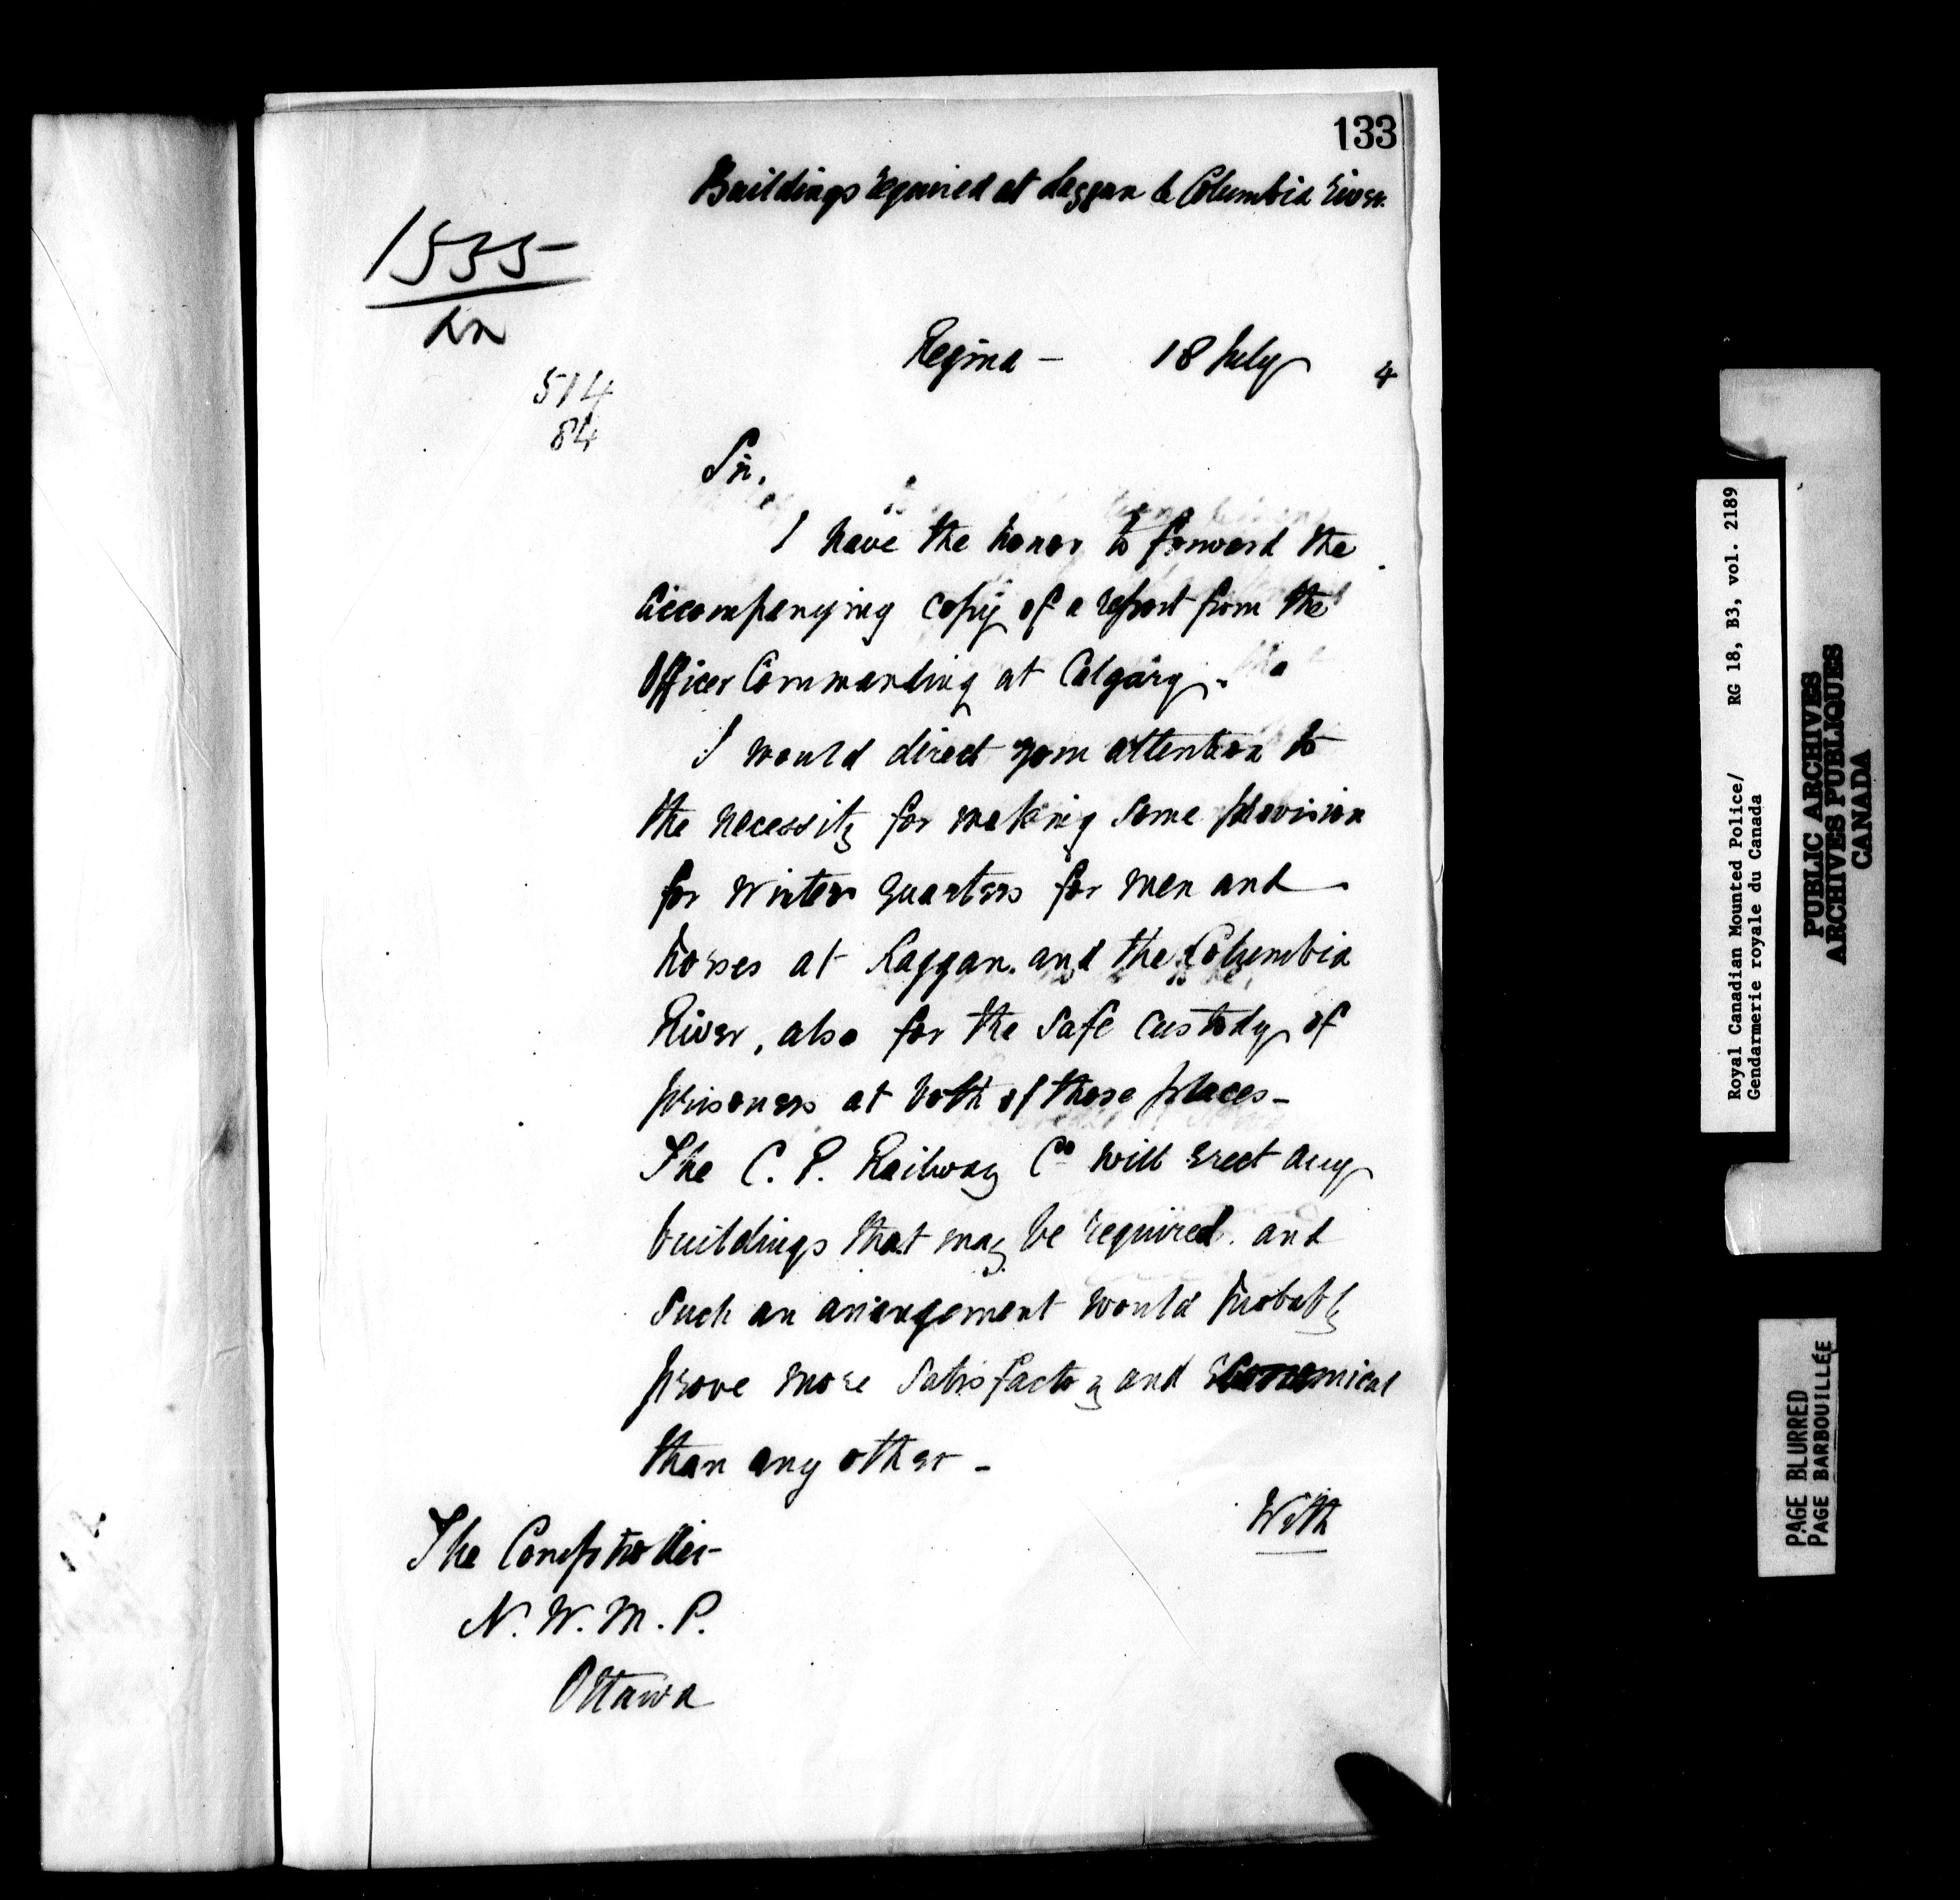 133
Buildings required at Laggan & Columbia River.
1535
Ln
514
84
Regina - 18 July 4
Sir,
I have the honor to forward the
accompanying copy of a report from the
Officer Commanding at Calgary.
I would direct your attention to
the necessity for making some provision
for winter quarters for men and
horses at Laggan, and the Columbia
River, also for the safe custody of
prisoners at both of these places -
The C. P. Railway Co will erect any
buildings that may be required. and
such an arrangement would probably
prove more satisfactory and economical
than any other -
With
The Comptroller
N. W. M. P.
Ottawa
Royal Canadian Mounted Police/ RG 18, B3, vol. 2189
Gendarmerie royale du Canada
PUBLIC ARCHIVES
ARCHIVES PUBLIQUES
CANADA
PAGE BLURRED
PAGE BARBOUILLÉE